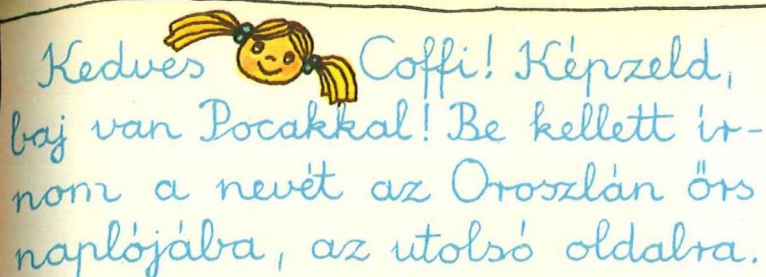 Kedves Coffi! Képzeld,
baj van Pocakkal! Be kellett ír-
nom a nevét az Oroszlán őrs
naplójába, az utolsó oldalra.